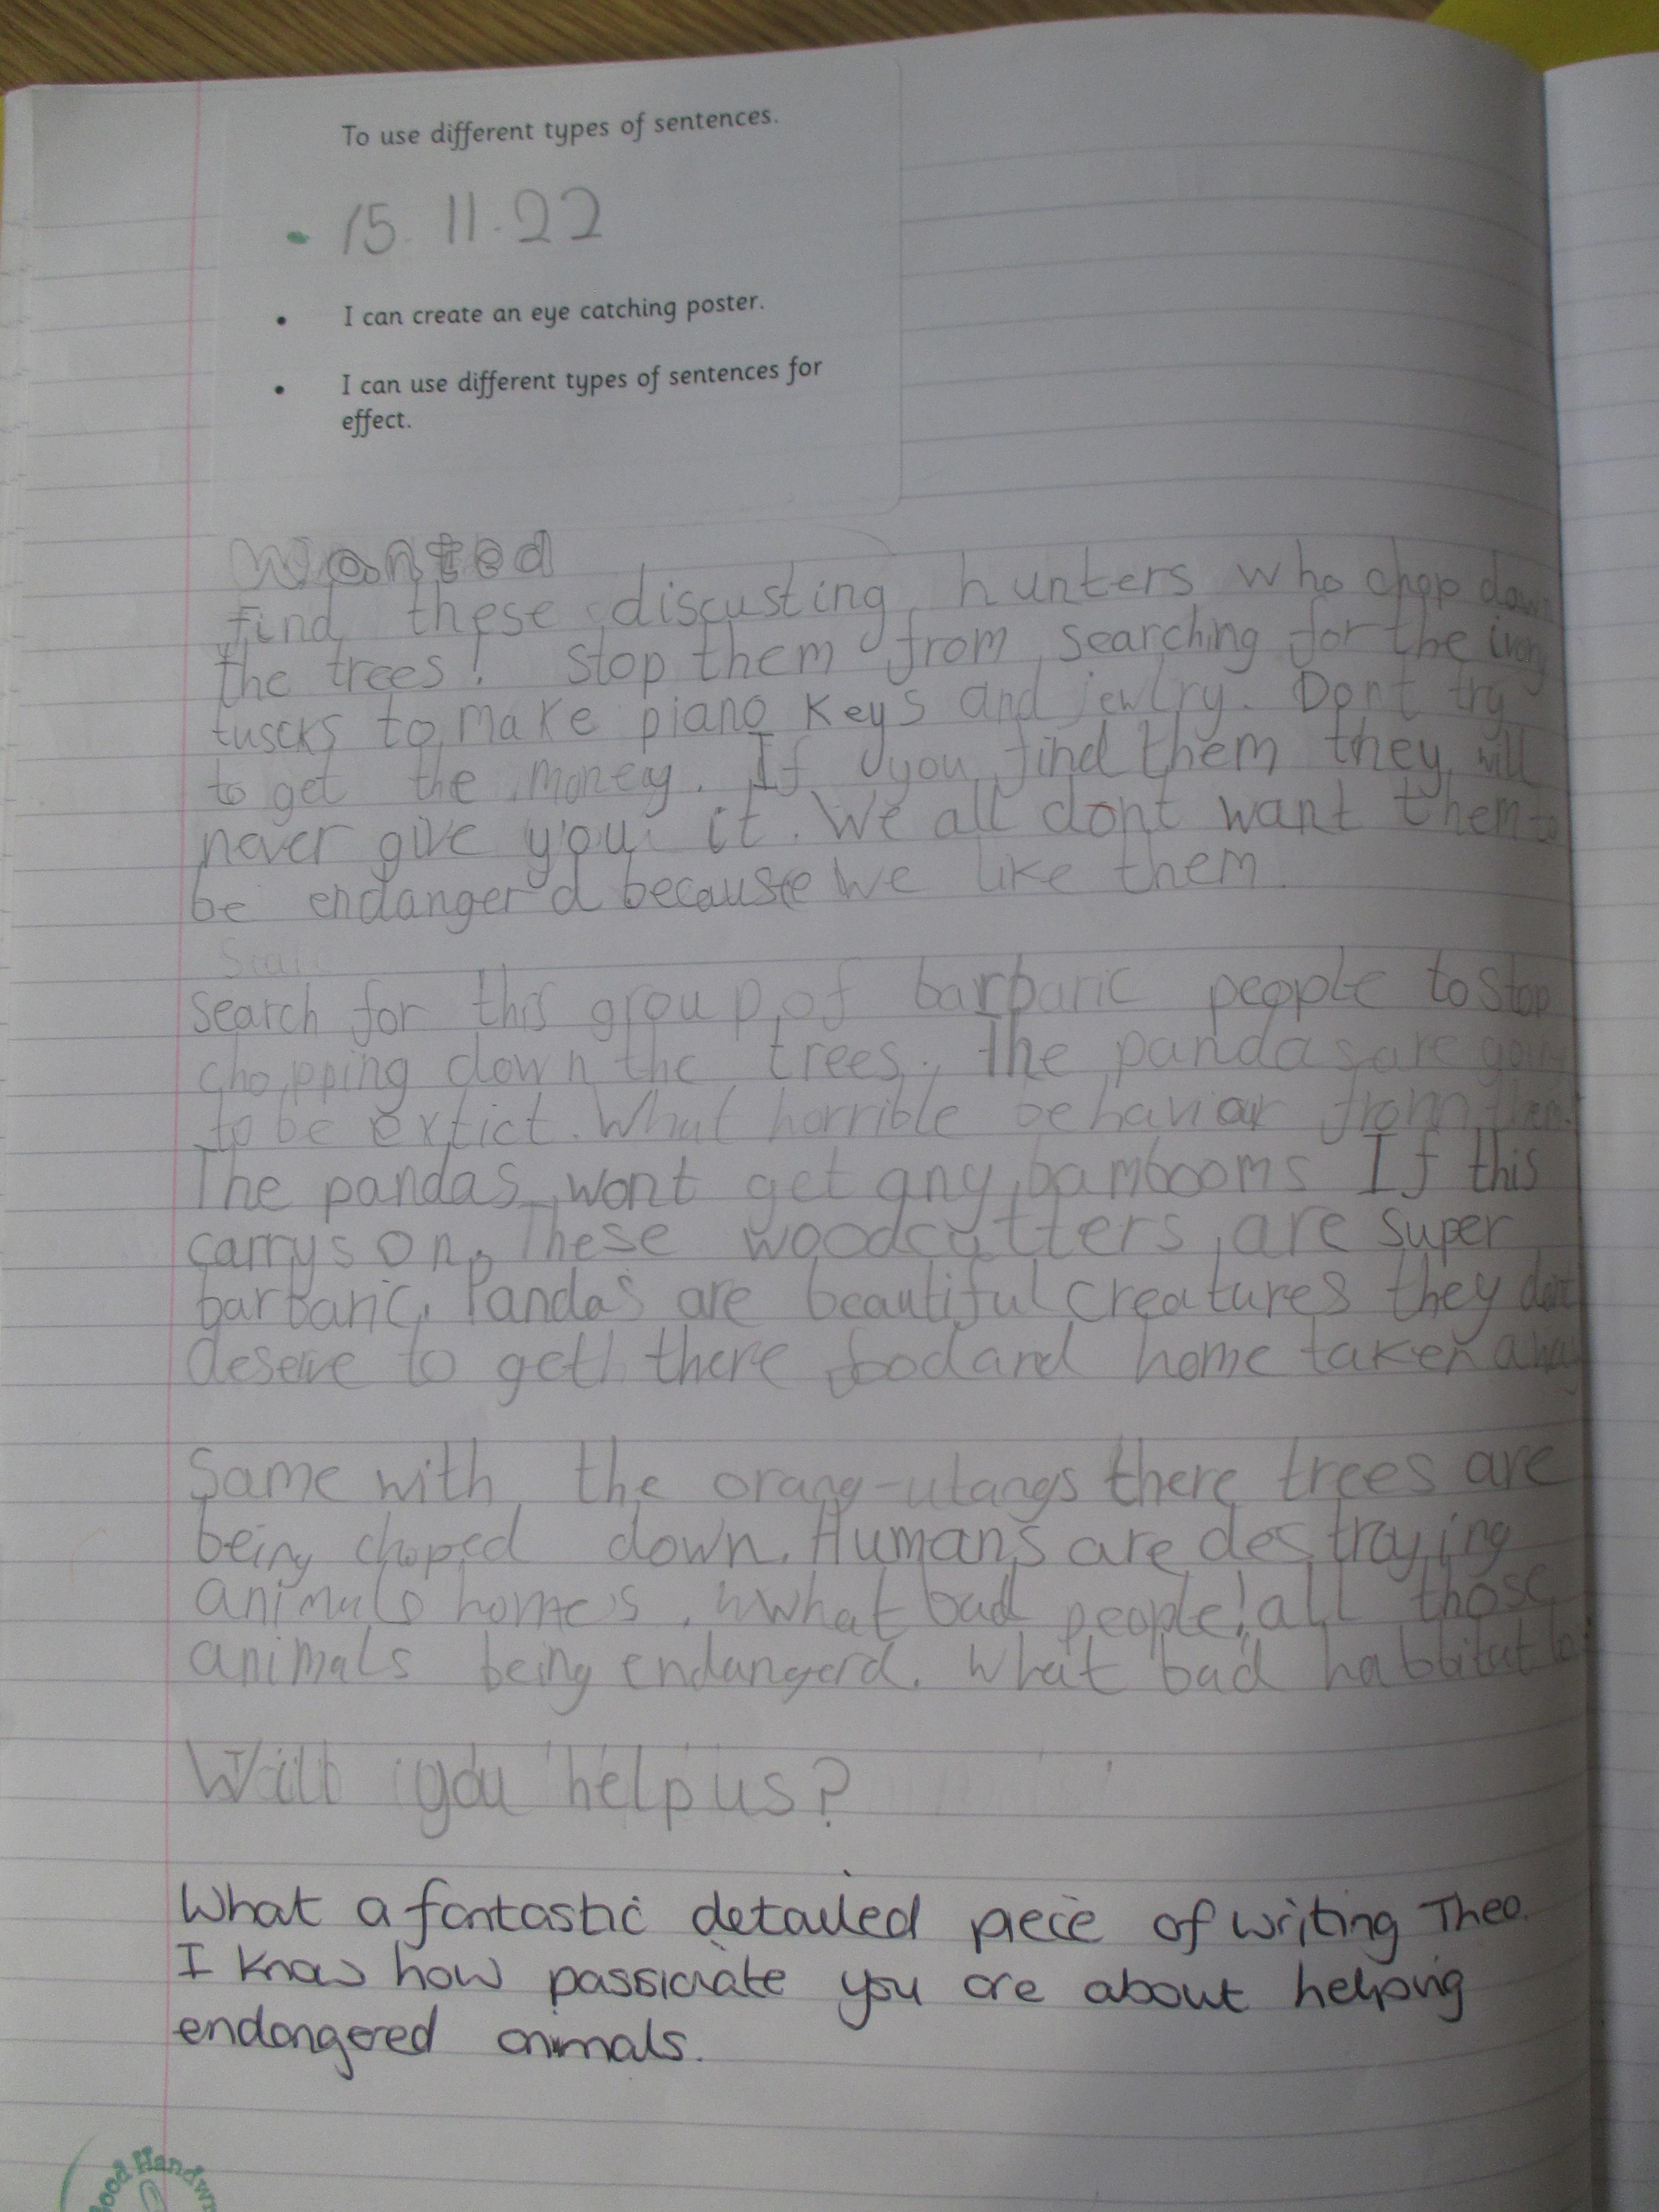 To use different types of sentences.
15.11.22
• I can create an eye catching poster.
• I can use different types of sentences for
effect.
Wanted
find these discusting hunters who chop down
the trees! Stop them from searching for the ivory
tuscks to make piano keys and jewlry. Dont try
to get the money. If you find them they will
never give you it. We all dont want them to
be endangerd because we like them
search for this group of barbaric people to stop
chopping down the trees. The pandas are going
to be extict. What horrible behaviour from them.
The pandas wont get any bambooms If this
carrys on. These woodcutters are super
barbaric. Pandas are beautiful creatures they dont
deserve to get there food and home taken away
Same with the orang-utangs there trees are
being choped down. Humans are destroying
animals homes. What bad people! all those
animals being endangerd. What bad habbitat
Will you help us?
What a fantastic detailed piece of writing Theo.
I know how passionate you are about helping
endangered animals.
Good Handwr